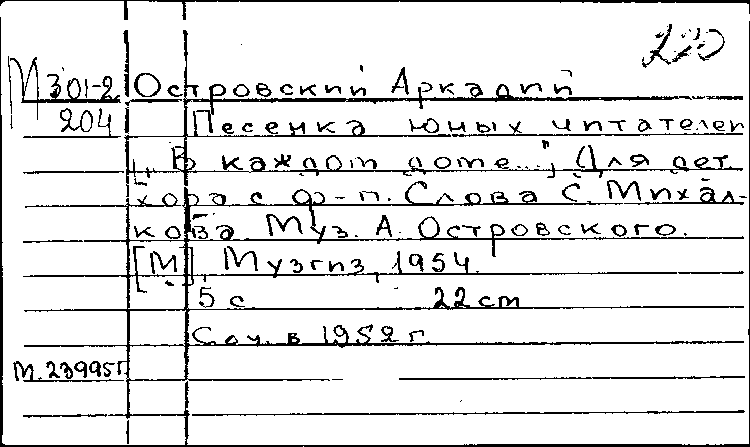 220
М 301-2 Островский Аркадий
204 Песенка юных читателей
[„В каждом доме...", Для дет.
хора с ф-п. Слова С. Михал-
кова. Муз. А. Островского.
[М], Музгиз, 1954.
5 с. 22 cm
Соч. в 1952 г.
М. 23995г